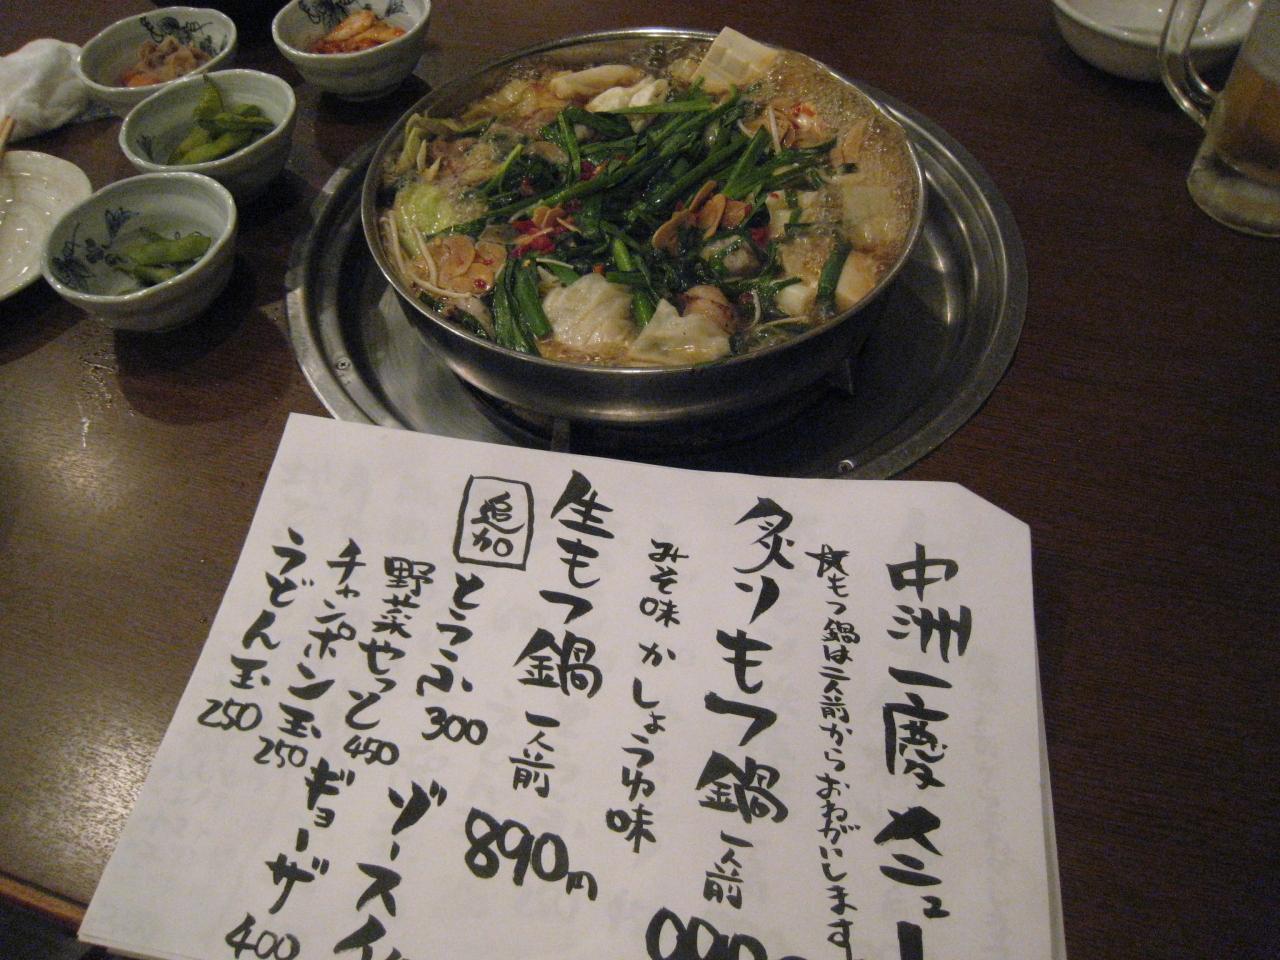 中洲一慶メニュー
もつ鍋は二人前からおねがいします
炙りもつ鍋 一人前
みそ味 かしょうゆ味
生もつ鍋 一人前 890円
追加
とうふ 300
野菜やっと 450
チャンポン玉 250
うどん玉 250
ゾースイ
ギョーザ 400